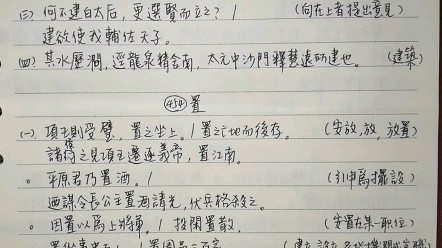 (三) 何不建白太后，更選賢而立之？/ (向在上者提出意見)
建欲使我輔佐天子。
(四) 其水歷澗，逕龍泉精舍南，太元中沙門釋慧遠所建也。 (建築)
(434) 置
(一) 項王則受璧，置之坐上。/ 置之亡地而後存。 (安放，放，放置)
諸侯之見項王遷逐義帝，置江南。
。平原君乃置酒。/ (引申為擺設)
迺謀令長公主置酒請光，伏兵格殺之。
。因置以為上將軍。/ 投閑置散。 (安置在某一職位)